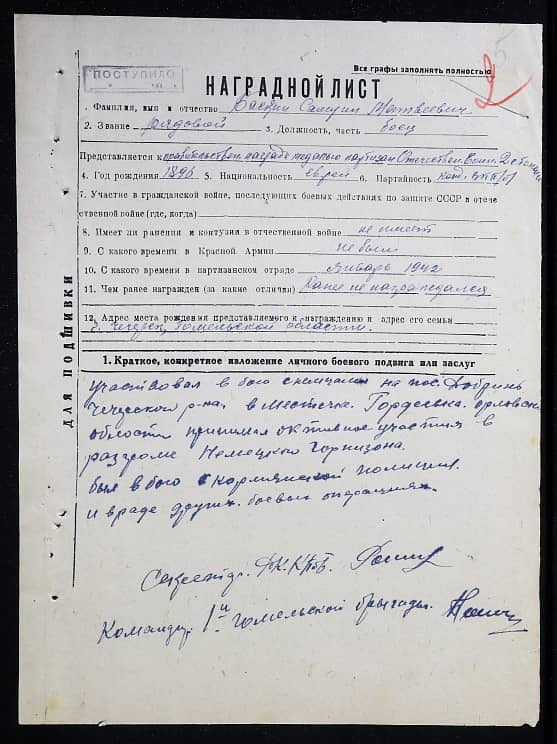 5
2
Все графы заполнять полностью
ПОСТУПИЛО
НАГРАДНОЙ ЛИСТ
. Фамилия, имя и отчество Баскин Самуил Матвеевич
2. Звание рядовой 3. Должность, часть боец
Представляется к правительствен. награде медалью партизан Отечествен. Войны 2й степени
4. Год рождения 1896 5. Национальность еврей 6. Партийность канд. ВКП/б/
7. Участие в гражданской войне, последующих боевых действиях по защите СССР в отече
ственной войне (где, когда)
8. Имеет ли ранения и контузия в отечественной войне не имеет
9. С какого времени в Красной Армии не был
10. С какого времени в партизанском отряде январь 1942
11. Чем ранее награжден (за какие отличия) Ранее не награждался
12. Адрес места рождения представляемого к награждению и адрес его семьи
г. Чечерск, Гомельской области.
ДЛЯ ПОДШИВКИ
1. Краткое, конкретное изложение личного боевого подвига или заслуг
участвовал в бою с немцами на пос. Добрынь
Чечерского р-на в местечке Гордеевка орловской
области принимал активное участия в
разгроме Немецкого Гарнизона.
был в бою с Кормянской полицией.
и в ряде других боевых операциях.
Секретарь РК КП/б/Б
Командир 1й Гомельской бригады.